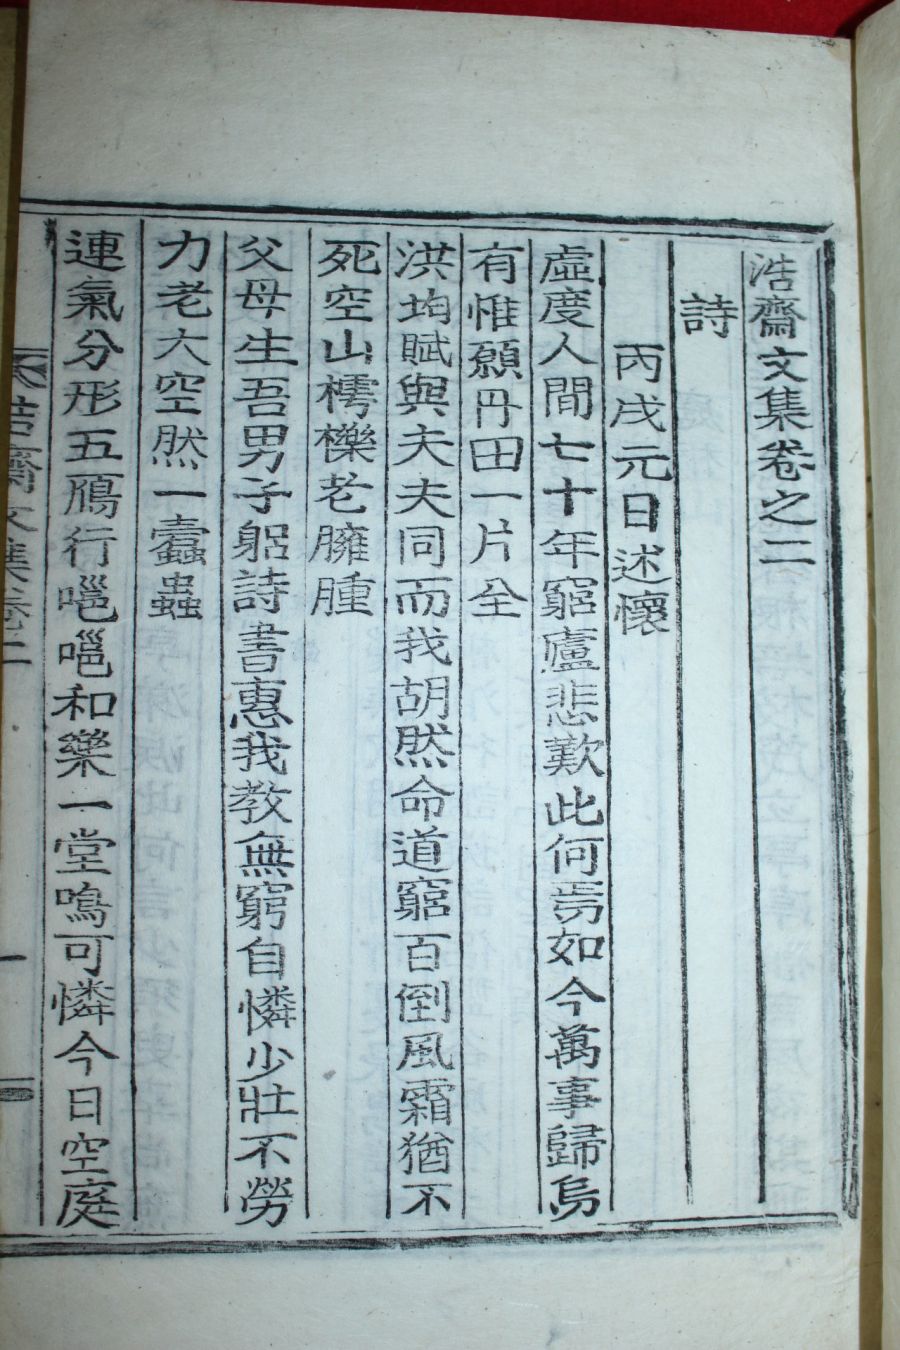 浩齋文集卷之二
詩
丙戌元日述懷
虛度人間七十年窮廬悲歎此何焉如今萬事歸烏
有惟願丹田一片全
洪均賦與夫夫同而我胡然命道窮百倒風霜猶不
死空山樗櫟老臃腫
父母生吾男子躳詩書惠我教無窮自憐少壯不勞
力老大空然一蠹蟲
連氣分形五鴈行嗈嗈和樂一堂鳴可憐今日空庭
浩齋文集卷二
一